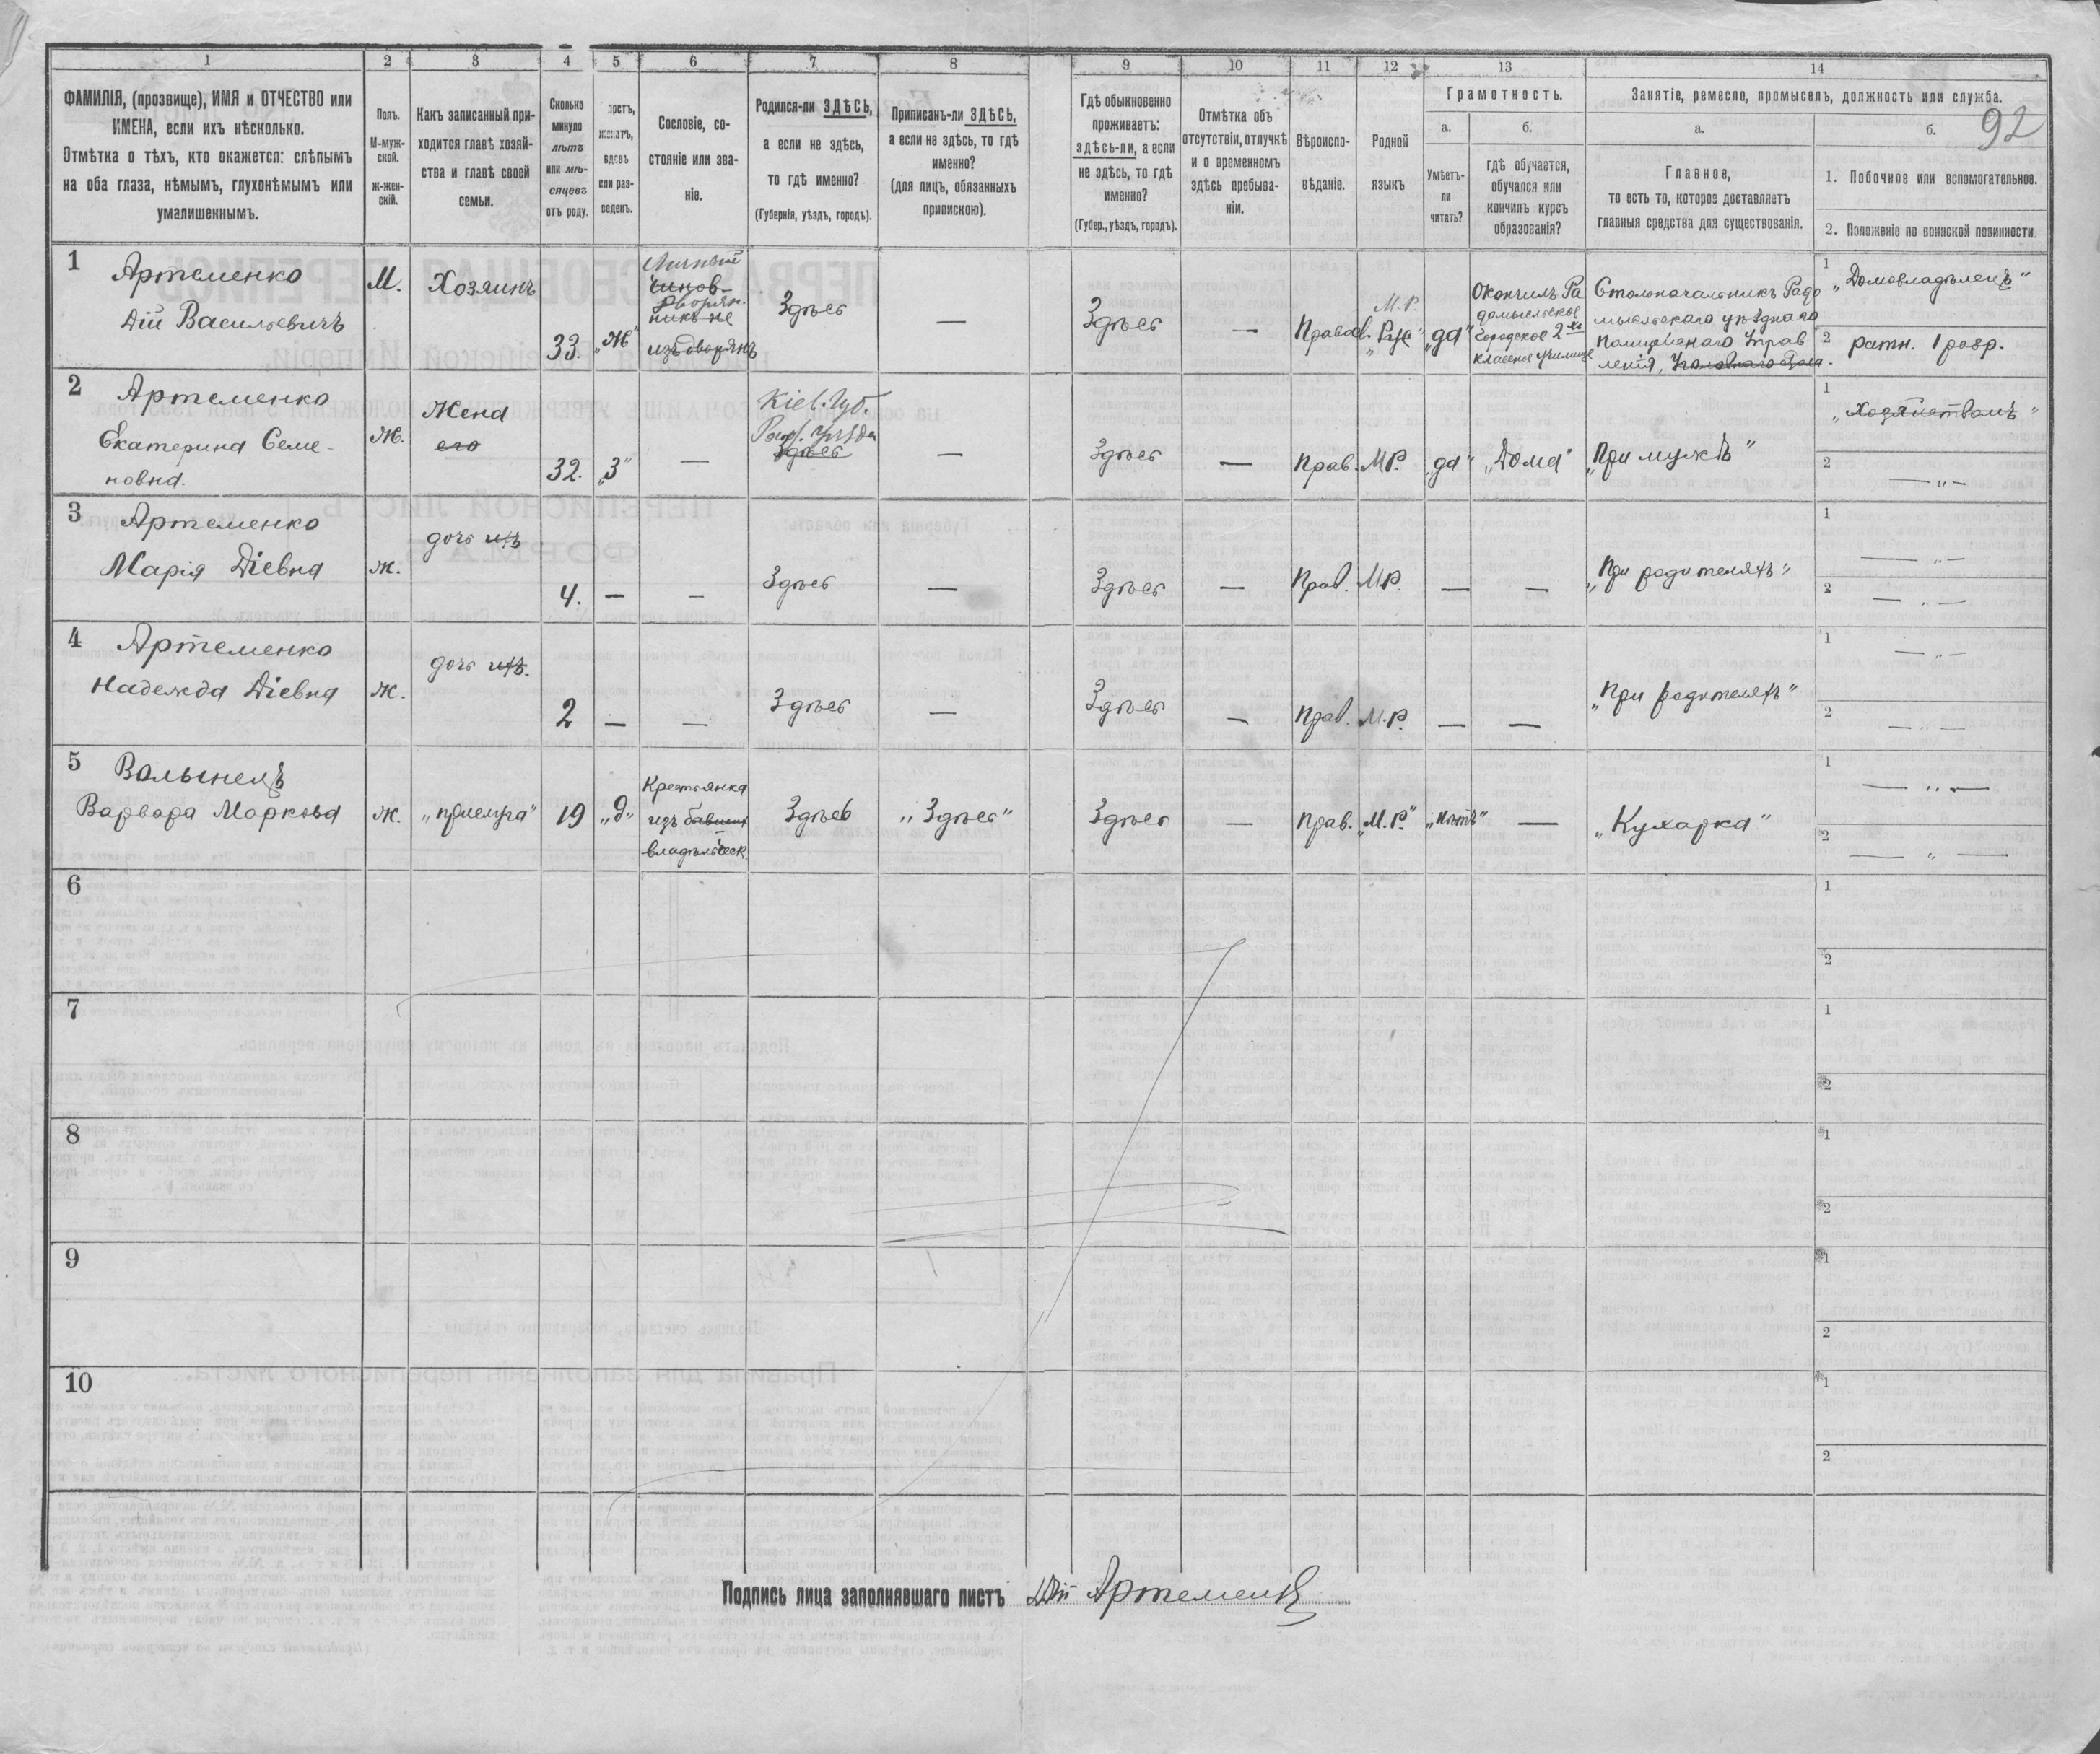 1 2 3 4 5 6 7 8 9 10 11 12 13 14
ФАМИЛІЯ, (прозвище), ИМЯ и ОТЧЕСТВО или
ИМЕНА, если ихъ нѣсколько.
Отмѣтка о тѣхъ, кто окажется: слѣпымъ
на оба глаза, нѣмымъ, глухонѣмымъ или
умалишеннымъ.
Полъ.
М-муж-
ской.
ж-жен-
скій.
Какъ записанный при-
ходится главѣ хозяй-
ства и главѣ своей
семьи.
Сколько
минуло
лѣтъ
или мѣ-
сяцевъ
отъ роду.
лостъ,
женатъ,
вдовъ
или раз-
веденъ.
Сословіе, со-
стояніе или зва-
ніе.
Родился-ли ЗДѢСЬ,
а если не здѣсь,
то гдѣ именно?
(Губернія, уѣздъ, городъ).
Приписанъ-ли ЗДѢСЬ,
а если не здѣсь, то гдѣ
именно?
(для лицъ, обязанныхъ
припискою).
Гдѣ обыкновенно
проживаетъ:
здѣсь-ли, а если
не здѣсь, то гдѣ
именно?
(Губер., уѣздъ, городъ).
Отмѣтка объ
отсутствіи, отлучкѣ
и о временномъ
здѣсь пребыва-
ніи.
Вѣроиспо-
вѣданіе.
Родной
языкъ
Грамотность.
а.
Умѣетъ-
ли
читать?
б.
гдѣ обучается,
обучался или
кончилъ курсъ
образованія?
Занятіе, ремесло, промыселъ, должность или служба.
92
а.
Главное,
то есть то, которое доставляетъ
главныя средства для существованія.
б.
1. Побочное или вспомогательное.
2. Положеніе по воинской повинности.
1
Артеменко
Дій Васильевичъ
М.
Хозяинъ
33.
„Ж"
Личный
чинов-
дворян.
никъ не
изъ дворянъ
Здѣсь
—
Здѣсь
—
Правос.
М.Р.
„Рус"
„да"
Окончилъ Ра
домысльское
городское 2хъ
класное училище
Столоначальникъ Радо
мысльскаго уѣзднаго
Полицейскаго Управ
ленія,
1 „Домовладѣлецъ"
2 ратн. 1 разр.
2
Артеменко
Екатерина Семе-
новна.
Ж.
Жена
его
32.
„З"
—
Кіев. Губ.
Рад. Уѣзда
Здѣсь
—
Здѣсь
—
Прав.
МР.
„да"
„Дома"
„При мужѣ"
1 „Хозяйствомъ"
2 — „ —
3
Артеменко
Марія Діевна
Ж.
дочь ихъ
4.
—
—
Здѣсь
—
Здѣсь
—
Прав.
МР.
—
—
„При родителяхъ"
1 — „ —
2 — „ —
4
Артеменко
Надежда Діевна
Ж.
дочь ихъ.
2
—
—
Здѣсь
—
Здѣсь
—
Прав.
М.Р.
—
—
„При родителяхъ"
1 — „ —
2 — „ —
5
Волынецъ
Варвара Маркова
Ж.
„прислуга"
19
„д"
Крестьянка
изъ бывших
владѣльческ.
Здѣсь
„Здѣсь"
Здѣсь
—
Прав.
„М.Р."
„Нѣтъ"
—
„Кухарка"
1 — „ —
2 — „ —
6
1
2
7
1
2
8
1
2
9
1
2
10
1
2
Подпись лица заполнявшаго листъ Дій Артеменко